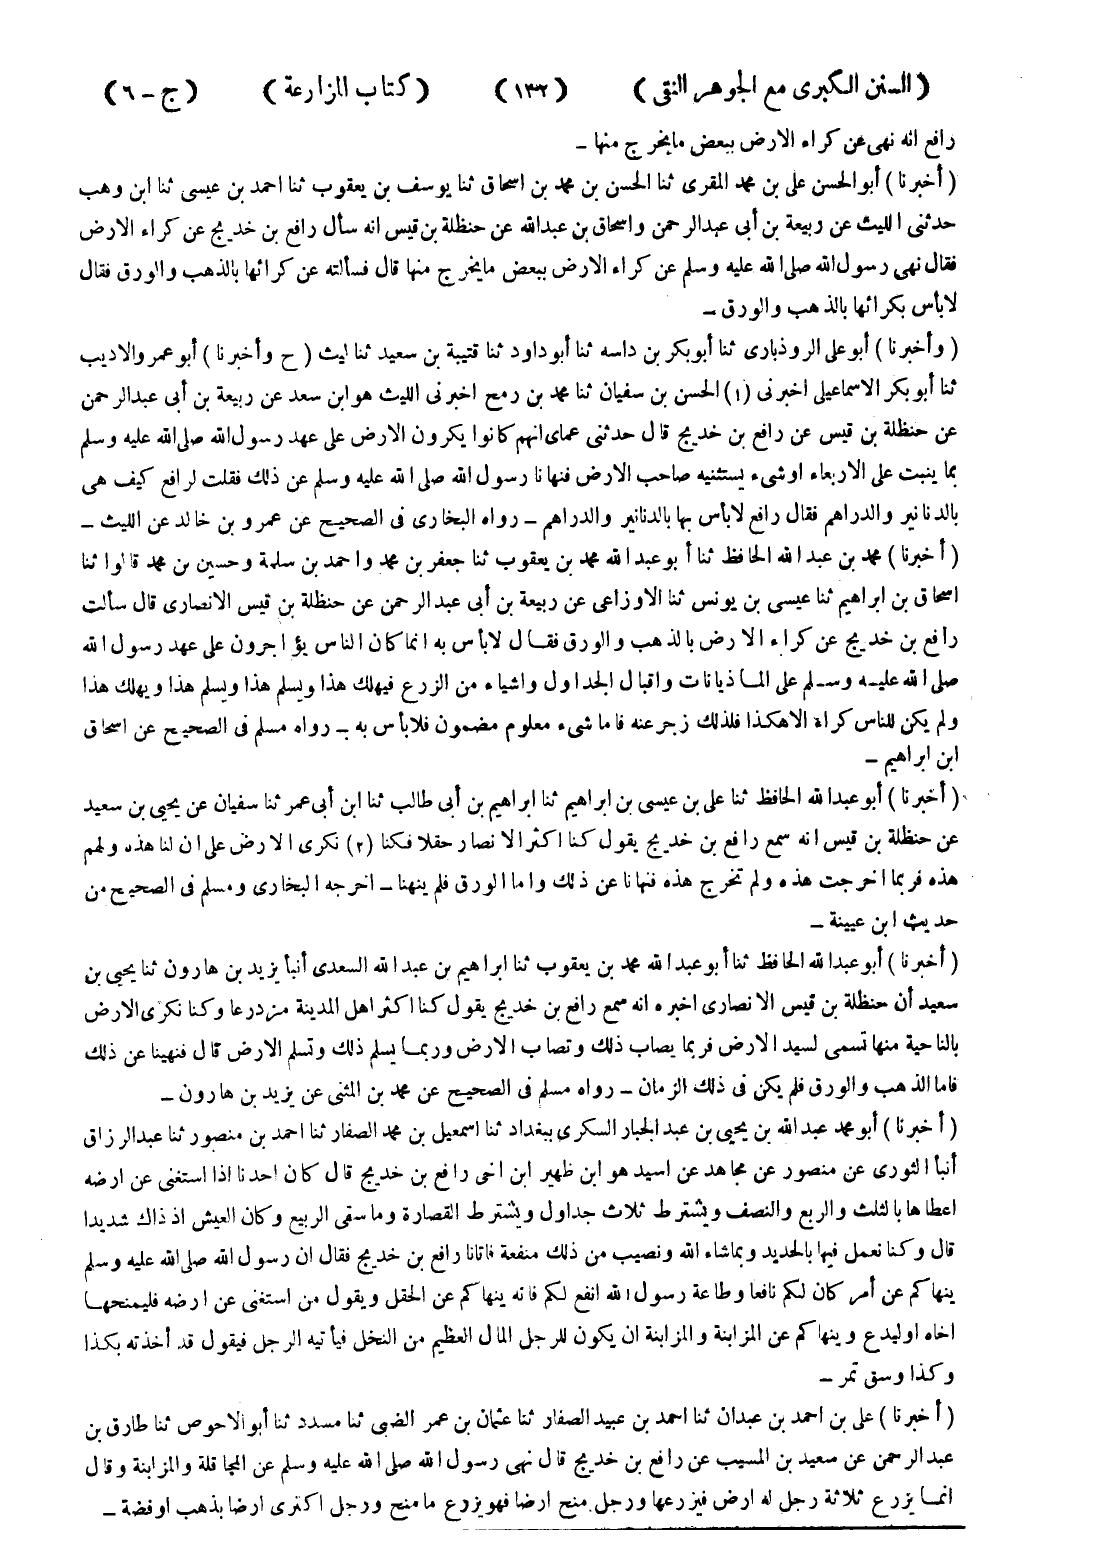 ( السنن الكبرى مع الجوهر النقى ) ( ١٣٢ ) ( كتاب المزارعة ) ( ج - ٦ )
رافع انه نهى عن كراء الارض ببعض مايخرج منها -
( أخبرنا ) أبو الحسن على بن محمد المقرى ثنا الحسن بن محمد بن اسحاق ثنا يوسف بن يعقوب ثنا احمد بن عيسى ثنا ابن وهب
حدثنى الليث عن ربيعة بن أبى عبدالرحمن واسحاق بن عبدالله عن حنظلة بن قيس انه سأل رافع بن خديج عن كراء الارض
فقال نهى رسول الله صلى الله عليه وسلم عن كراء الارض ببعض مايخرج منها قال فسألته عن كرائها بالذهب والورق فقال
لابأس بكرائها بالذهب والورق -
( وأخبرنا ) أبو على الروذبارى ثنا أبوبكر بن داسه ثنا أبوداود ثنا قتيبة بن سعيد ثنا ليث ( ح وأخبرنا ) أبو عمرو الاديب
ثنا أبو بكر الاسماعيلى اخبرنى (١) الحسن بن سفيان ثنا محمد بن رمح اخبرنى الليث هو ابن سعد عن ربيعة بن أبى عبدالرحمن
عن حنظلة بن قيس عن رافع بن خديج قال حدثنى عماى انهم كانوا يكرون الارض على عهد رسول الله صلى الله عليه وسلم
بما ينبت على الاربعاء اوشىء يستثنيه صاحب الارض فنهانا رسول الله صلى الله عليه وسلم عن ذلك فقلت لرافع كيف هى
بالدنانير والدراهم فقال رافع لابأس بها بالدنانير والدراهم - رواه البخارى فى الصحيح عن عمرو بن خالد عن الليث -
( أخبرنا ) محمد بن عبد الله الحافظ ثنا أبو عبد الله محمد بن يعقوب ثنا جعفر بن محمد واحمد بن سلمة وحسين بن محمد قالوا ثنا
اسحاق بن ابراهيم ثنا عيسى بن يونس ثنا الاوزاعى عن ربيعة بن أبى عبدالرحمن عن حنظلة بن قيس الانصارى قال سألت
رافع بن خديج عن كراء الارض بالذهب والورق فقال لابأس به انما كان الناس يؤاجرون على عهد رسول الله
صلى الله عليه وسلم على الماذيانات واقبال الجداول واشياء من الزرع فيهلك هذا ويسلم هذا ويسلم هذا ويهلك هذا
ولم يكن للناس كراء الاهكذا فلذلك زجر عنه فاما شىء معلوم مضمون فلابأس به - رواه مسلم فى الصحيح عن اسحاق
ابن ابراهيم -
( أخبرنا ) أبو عبدالله الحافظ ثنا على بن عيسى بن ابراهيم ثنا ابراهيم بن أبى طالب ثنا ابن أبى عمر ثنا سفيان عن يحيى بن سعيد
عن حنظلة بن قيس انه سمع رافع بن خديج يقول كنا اكثر الانصار حقلا فكنا (٢) نكرى الارض على ان لنا هذه ولهم
هذه فربما اخرجت هذه ولم تخرج هذه فنهانا عن ذلك واما الورق فلم ينهنا - اخرجه البخارى ومسلم فى الصحيح من
حديث ابن عيينة -
( أخبرنا ) أبو عبدالله الحافظ ثنا أبو عبدالله محمد بن يعقوب ثنا ابراهيم بن عبد الله السعدى أنبأ يزيد بن هارون ثنا يحيى بن
سعيد أن حنظلة بن قيس الانصارى اخبره انه سمع رافع بن خديج يقول كنا اكثر اهل المدينة مزدرعا وكنا نكرى الارض
بالناحية منها تسمى لسيد الارض فربما يصاب ذلك وتصاب الارض وربما يسلم ذلك وتسلم الارض قال فنهينا عن ذلك
فاما الذهب والورق فلم يكن فى ذلك الزمان - رواه مسلم فى الصحيح عن محمد بن المثنى عن يزيد بن هارون -
( أخبرنا ) أبو محمد عبدالله بن يحيى بن عبد الجبار السكرى ببغداد ثنا اسمعيل بن محمد الصفار ثنا احمد بن منصور ثنا عبدالرزاق
أنبأ الثورى عن منصور عن مجاهد عن اسيد هو ابن ظهير ابن اخى رافع بن خديج قال كان احدنا اذا استغنى عن ارضه
اعطاها بالثلث والربع والنصف ويشترط ثلاث جداول ويشترط القصارة وما سقى الربيع وكان العيش اذ ذاك شديدا
قال وكنا نعمل فيها بالحديد وبماشاء الله ونصيب من ذلك منفعة فاتانا رافع بن خديج فقال ان رسول الله صلى الله عليه وسلم
ينهاكم عن أمر كان لكم نافعا وطاعة رسول الله انفع لكم فانه ينهاكم عن الحقل ويقول من استغنى عن ارضه فليمنحها
اخاه اوليدع وينهاكم عن المزابنة والمزابنة ان يكون للرجل المال العظيم من النخل فيأتيه الرجل فيقول قد أخذته بكذا
وكذا وسق تمر -
( أخبرنا ) على بن احمد بن عبدان ثنا احمد بن عبيد الصفار ثنا عثمان بن عمر الضبى ثنا مسدد ثنا أبو الاحوص ثنا طارق بن
عبدالرحمن عن سعيد بن المسيب عن رافع بن خديج قال نهى رسول الله صلى الله عليه وسلم عن المحاقلة والمزابنة وقال
انما يزرع ثلاثة رجل له ارض فيزرعها ورجل منح ارضا فهو يزرع ما منح ورجل اكترى ارضا بذهب اوفضة -